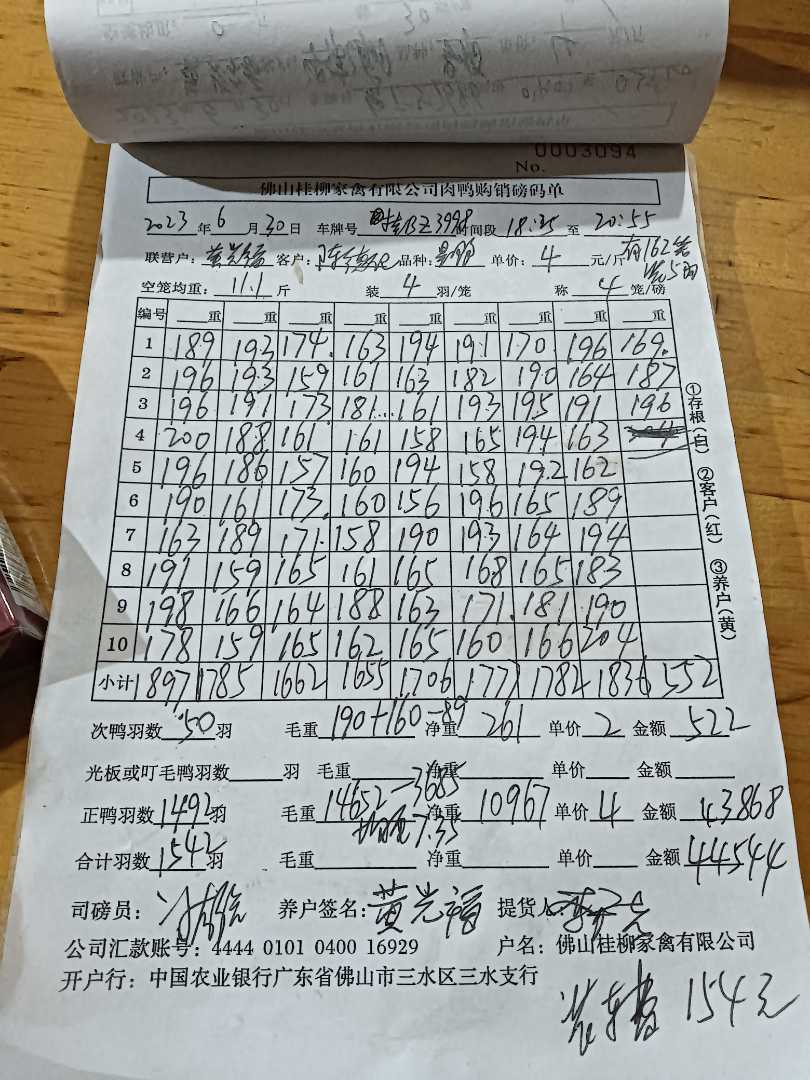 No. 0003094
佛山桂柳家禽有限公司肉鸭购销磅码单
2023 年 6 月 30 日 车牌号 桂BZ3998 时间段 18:35 至 20:55
联营户: 黄光福 客户: 品种: 单价: 4 元/斤 有162笼
空笼均重: 11.1 斤 装 4 羽/笼 称 4 笼/磅
编号 重 重 重 重 重 重 重 重 重
1 189 193 174 163 194 191 170 196 169
2 196 193 159 161 163 182 190 164 187
3 196 191 173 181 161 193 195 191 196
4 200 188 161 161 158 165 194 163
5 196 186 157 160 194 158 192 162
6 190 161 173 160 156 196 165 189
7 163 189 171 158 190 193 164 194
8 191 159 165 161 165 168 165 183
9 198 166 164 188 163 171 181 190
10 178 159 165 162 165 160 166 204
小计 1897 1785 1662 1655 1706 1777 1782 1836 552
①存根(白) ②客户(红) ③养户(黄)
次鸭羽数 50 羽 毛重 190+160-89 净重 261 单价 2 金额 522
光板或叮毛鸭羽数 羽 毛重 净重 单价 金额
正鸭羽数 1492 羽 毛重 14652-3685 净重 10967 单价 4 金额 43868
均重7.35
合计羽数 1542 羽 毛重 净重 单价 金额 44544
司磅员: 养户签名: 黄光福 提货人:
公司汇款账号: 4444 0101 0400 16929 户名: 佛山桂柳家禽有限公司
开户行: 中国农业银行广东省佛山市三水区三水支行
装车费 154元